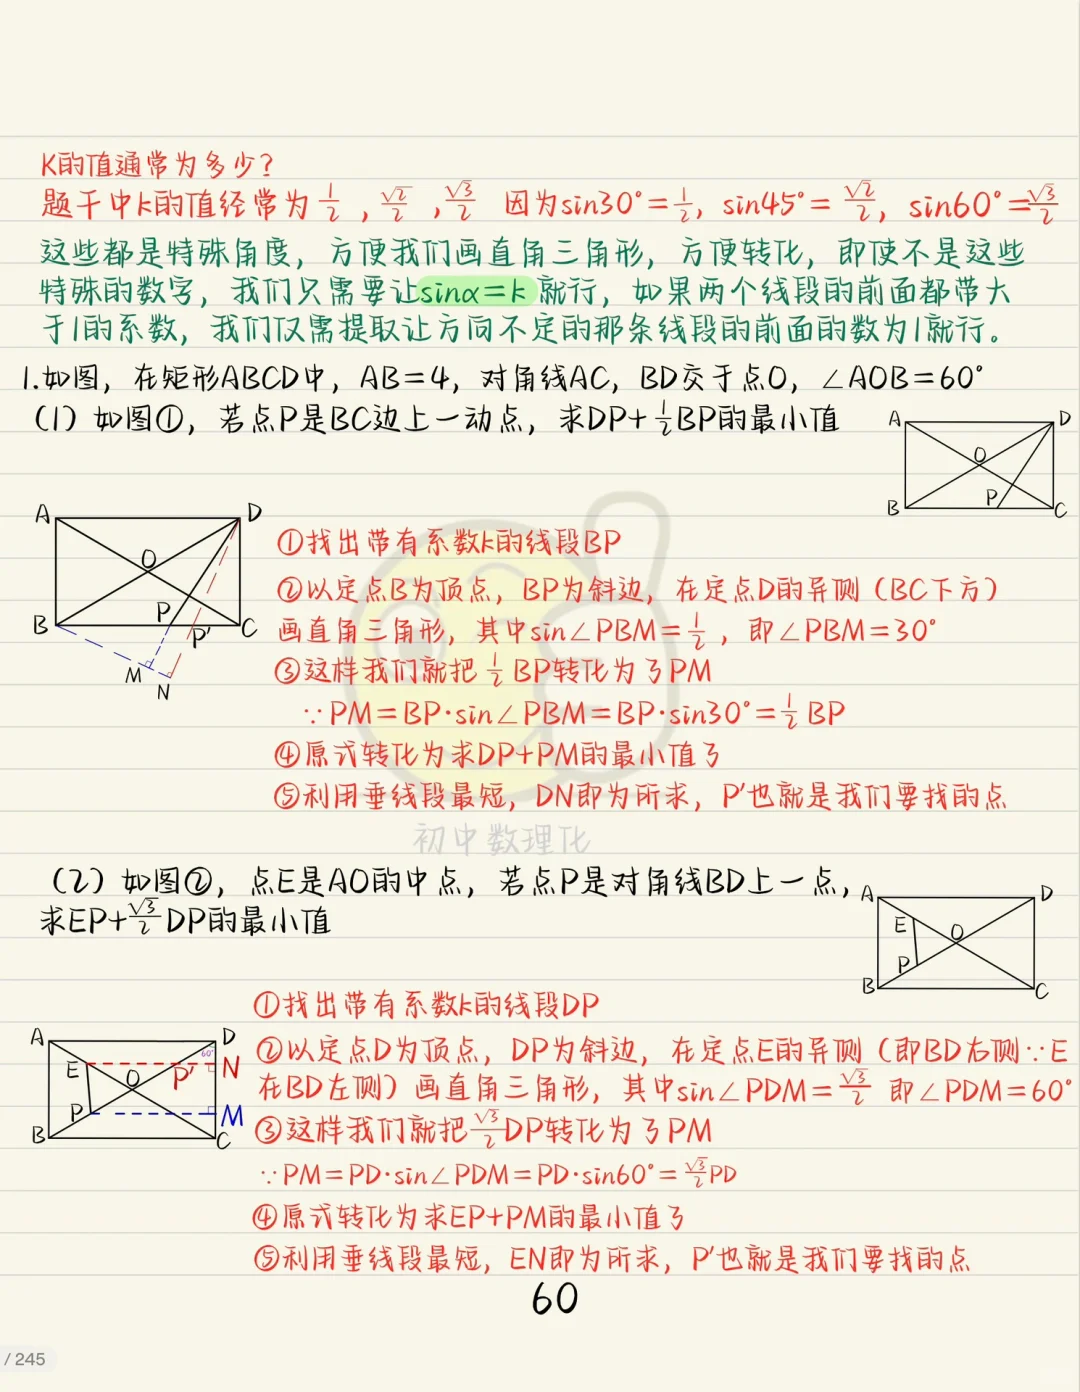 K的值通常为多少?
题干中k的值经常为 1/2 , √2/2 , √3/2 因为sin30°=1/2, sin45°=√2/2, sin60°=√3/2
这些都是特殊角度, 方便我们画直角三角形, 方便转化, 即使不是这些
特殊的数字, 我们只需要让sinα=k就行, 如果两个线段的前面都带大
于1的系数, 我们仅需提取让方向不定的那条线段的前面的数为1就行。
1.如图, 在矩形ABCD中, AB=4, 对角线AC, BD交于点O, ∠AOB=60°
(1) 如图①, 若点P是BC边上一动点, 求DP+1/2BP的最小值
A D
O
P
B C
A D
O
P
B P' C
M
N
①找出带有系数k的线段BP
②以定点B为顶点, BP为斜边, 在定点D的异侧 (BC下方)
画直角三角形, 其中sin∠PBM=1/2, 即∠PBM=30°
③这样我们就把 1/2 BP转化为了PM
∵PM=BP·sin∠PBM=BP·sin30°=1/2 BP
④原式转化为求DP+PM的最小值了
⑤利用垂线段最短, DN即为所求, P'也就是我们要找的点
初中数理化
(2) 如图②, 点E是AO的中点, 若点P是对角线BD上一点,
求EP+√3/2 DP的最小值
A D
E
O
P
B C
A D
60°
E O P' N
P M
B C
①找出带有系数k的线段DP
②以定点D为顶点, DP为斜边, 在定点E的异侧 (即BD右侧∵E
在BD左侧) 画直角三角形, 其中sin∠PDM=√3/2 即∠PDM=60°
③这样我们就把√3/2DP转化为了PM
∵PM=PD·sin∠PDM=PD·sin60°=√3/2PD
④原式转化为求EP+PM的最小值了
⑤利用垂线段最短, EN即为所求, P'也就是我们要找的点
60
/ 245